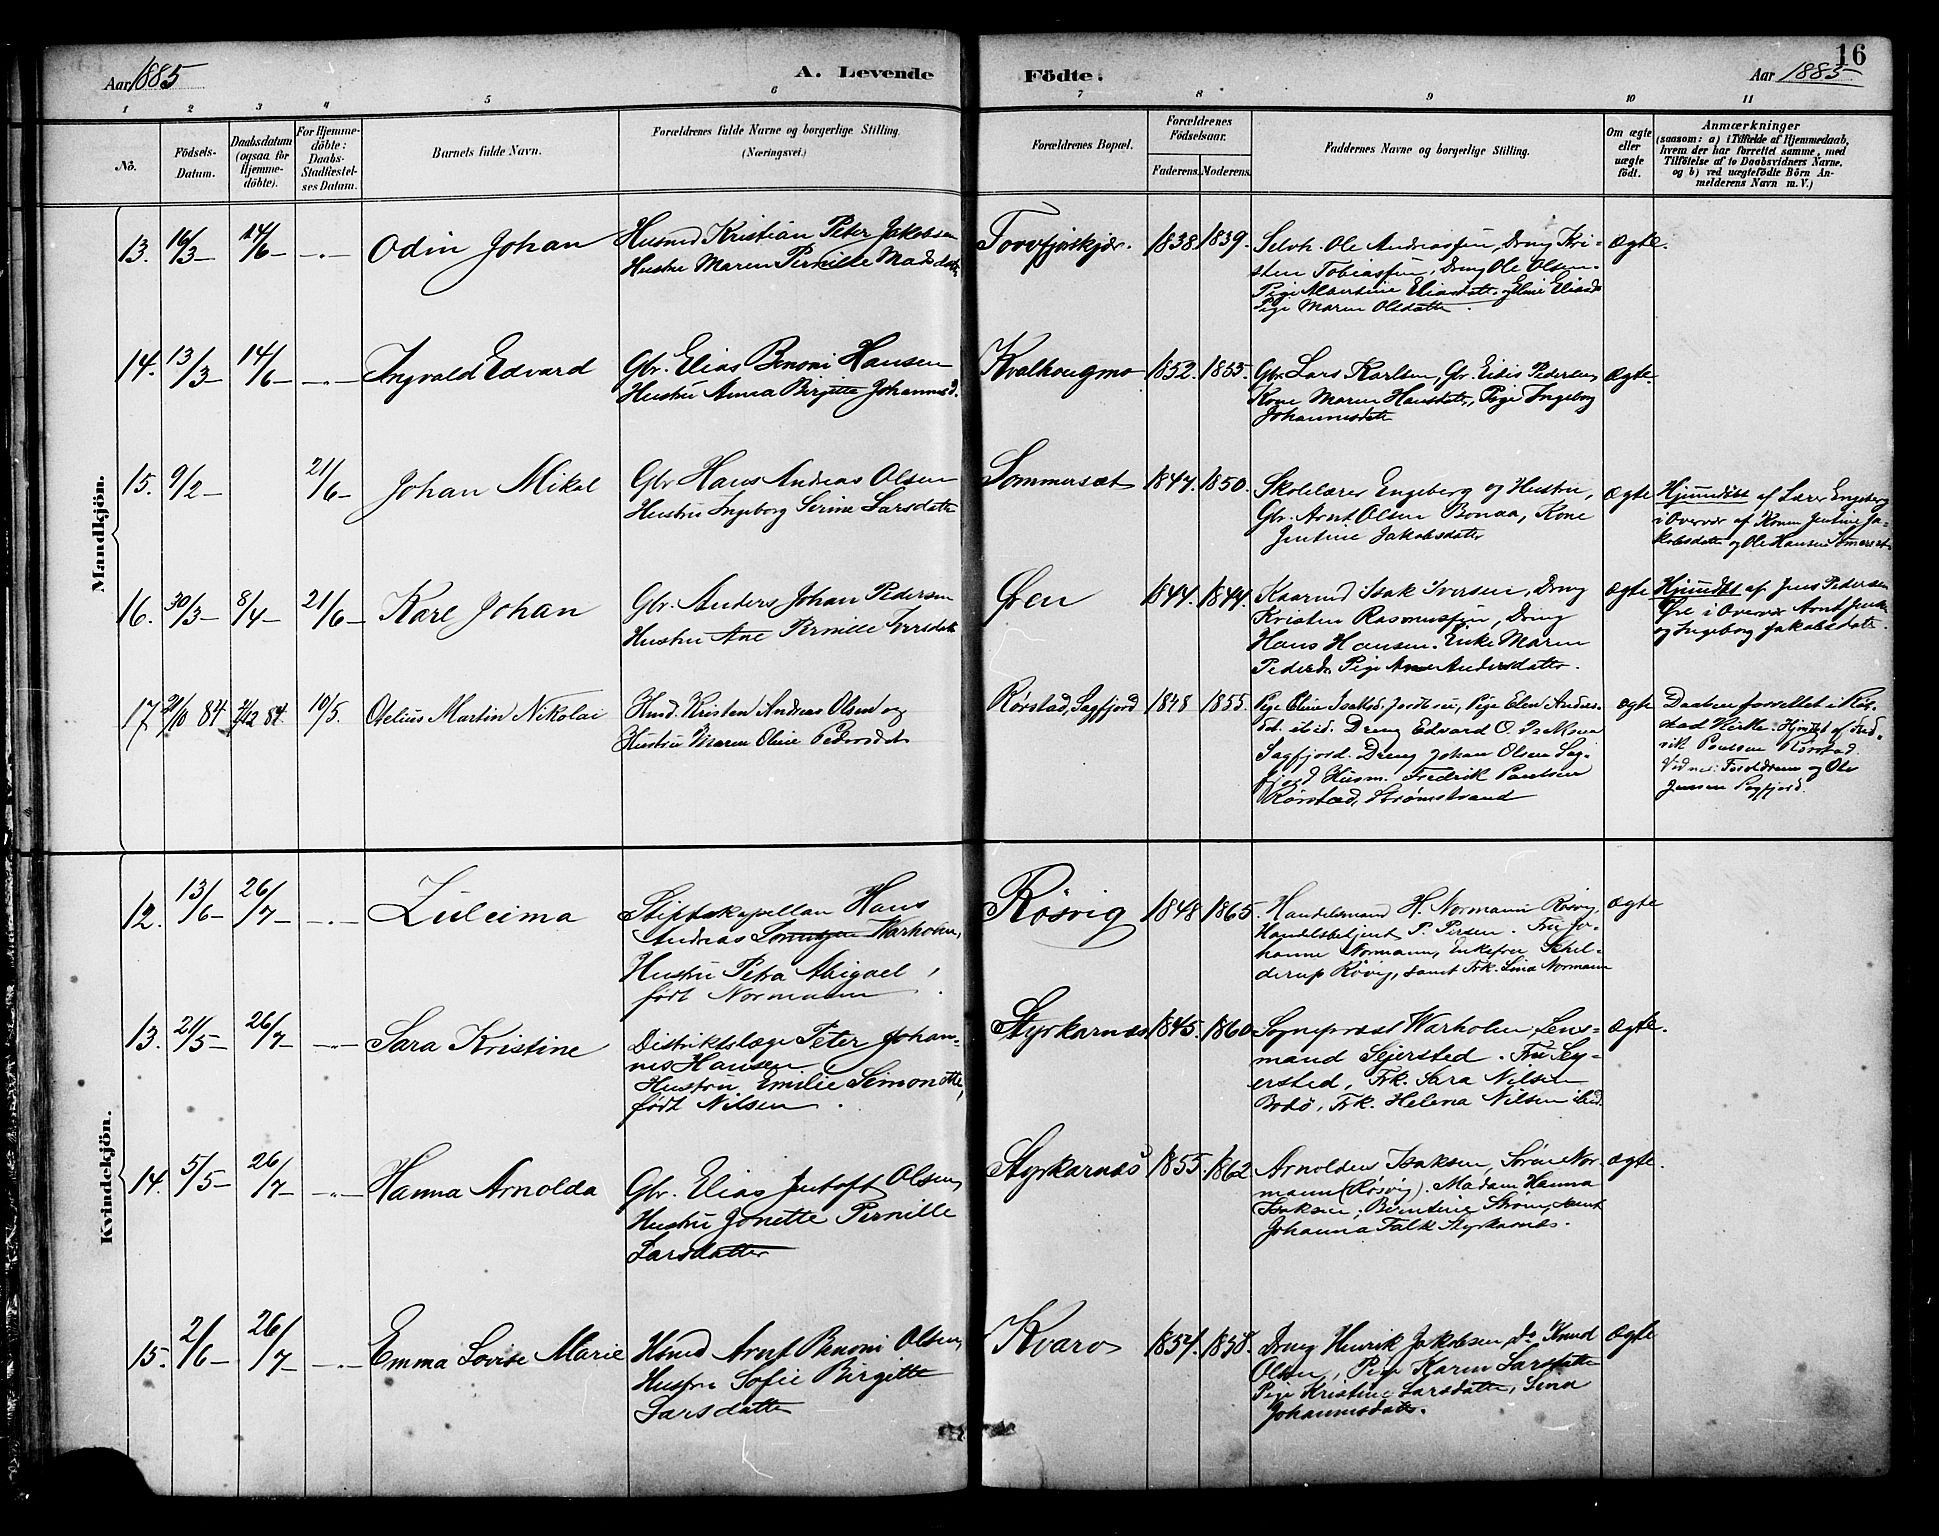 Aar 1885
A. Levende
Födte.
16
Aar 1885
1 2 3 4 5 6 7 8 9 10 11
No.
Födsels-
Datum.
Daabsdatum
(ogsaa for
Hjemme-
döbte).
For Hjemme-
döbte:
Daabs-
Stadfæstel-
ses Datum.
Barnets fulde Navn.
Forældrenes fulde Navne og borgerlige Stilling.
(Næringsvei.)
Forældrenes Bopæl.
Forældrenes
Födselsaar.
Faderens. Moderens.
Faddernes Navne og borgerlige Stilling.
Om ægte
eller
uægte
födt.
Anmærkninger
(saasom: a) i Tilfælde af Hjemmedaab,
hvem der har forrettet samme, med
Tilföielse af to Daabsvidners Navne,
og b) ved uægtefödte Börn An-
melderens Navn m. V.)
Mandkjön.
13. 16/3 14/6 Odin Johan
Husmd Kristian Peter Jakobsen
Hustru Maren Pernille Madsdatter
1838. 1839.
Selvh. Ole Andreassen, Dreng Kri-
sten Tobiassen, Dreng Ole Olsen.
Pige Albertine Eliasdatter, Eline Eliasd
Pige Maren Olsdatter.
ægte.
14. 13/3 14/6 Ingvald Edvard
Gbr. Elias Benoni Hansen
Hustru Anna Birgitte Johannesd.
Kvalhougmo 1852. 1855.
Gbr. Lars Karlsen, Gbr. Pedersen,
Kone Maren Hansdatter, Pige Ingeborg
Johannesdatter
ægte.
15. 9/2 21/6 Johan Mikal
Gbr Hans Andreas Olsen
Hustru Ingeborg Serine Larsdatter
Sommersæt 1847. 1850.
Skolelærer Engeberg og Hustru,
Gbr. Arnt Olsen Bonaa, Kone
Jentine Jakobsdatter
ægte
Hjemdöbt af Lærer Engeberg
i Overvær af Konen Jentine Ja-
kobsdatter og Ole Hansen Somersæt
16. 30/3 8/4 21/6 Karl Johan
Gbr. Anders Johan Pedersen
Hustru Ane Pernille Iversdatter
Øren 1844. 1844.
Kaarmd Isak Iversen, Dreng
Kristen Rasmussen, Dreng
Hans Hansen. Enke Maren
Pedersd. Pige Ane Andersdatter.
ægte
Hjemdöbt af Jens Pedersen
i Overvær Arnt
og Ingeborg Jakobsdatter.
17 21/10 84 84. 10/5. Otelius Martin Nikolai
Husmd. Kristen Andreas Olsen og
Hustru Maren Oline Pedersdatter
Rørstad, Sagfjord 1848 1855.
Pige Oline Isaksd, Pige Elen Andreas-
d. ibid. Dreng Edvard O. Isaksen
Sagfjord. Dreng Johan Olsen Sag-
fjord Husm. Fredrik Paulsen
Rørstad, Strømstrand
ægte
Daaben forrettet i Rør-
stad Kirke. Hjmdøbt af Fred-
rik Paulsen Rørstad.
Vidner: Forældrene og Ole
Jensen Sagfjord.
Kvindekjön.
12. 13/6 26/7 Zuleima
Stiftskapellan Hans
Andreas Warholm,
Hustru Petra Abigael,
født Normann
Røsvig 1848 1865.
Handelsmand H. Normann Røsvig,
Handelsbetjent P. Persen. Fru Jo-
hanne Normann, Enkefru Schil-
derup Røsvig, samt Frk. Lina Normann
ægte
13. 21/5 26/7 Sara Kristine
Distriktslæge Peter Johan-
nes Hansen
Hustru Emilie Simonette,
født Nilsen.
Styrkarnæs 1845. 1860
Sogneprest Warholm, Lens-
mand Sejersted. Fru Sey-
ersted, Frk. Sara Nilsen
Bodø, Frk. Helena Nilsen ibid.
ægte.
14. 5/5 26/7 Hanna Arnolda
Gbr. Elias Jentoft Olsen,
Hustru Jonette Pernille
Larsdatter
Styrkarnæs 1855. 1862.
Arnoldus Isaksen, Søren Nor-
mann (Røsvig). Madam Hanna
Isaksen, Berntine Strøm, samt
Johanna Falk Styrkarnæs.
ægte.
15. 2/6 26/7 Emma Lovise Marie
Hsmd Arnt Benoni Olsen,
Hustru Sofie Birgitte
Larsdatter
Kvarv 1854. 1858.
Dreng Henrik Jakobsen, Do Knud
Olsen, Pige Karen Larsdatter
Pige Kristine Larsdatter, Lina
Johannesdatter.
ægte